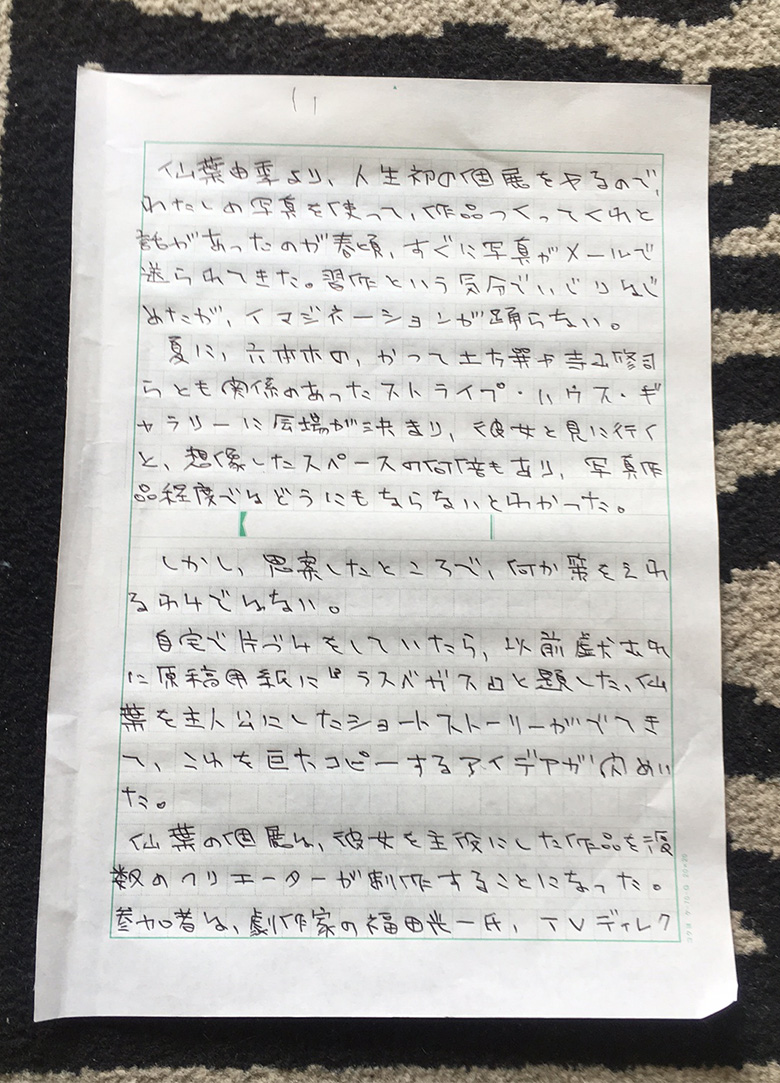 仙葉由季より、人生初の個展をやるので、
わたしの写真を使って、作品つくってくれと
話があったのが春頃、すぐに写真がメールで
送られてきた。習作という気分でいじりはじ
めたが、イマジネーションが踊らない。
夏に、六本木の、かって土方巽や寺山修司
らとも関係のあったストライプ・ハウス・ギ
ャラリーに会場が決まり、彼女と見に行く
と、想像したスペースの何倍もあり、写真作
品程度ではどうにもならないとわかった。
しかし、思案したところで、何か策をえれ
るわけではない。
自宅で片づけをしていたら、以前戯れ
に原稿用紙に『ラスベガス』と題した、仙
葉を主人公にしたショートストーリーがでてき
て、これを巨大コピーするアイデアが閃めい
た。
仙葉の個展は、彼女を主役にした作品を複
数のクリエーターが制作することになった。
参加者は、劇作家の福田光一氏、TVディレク